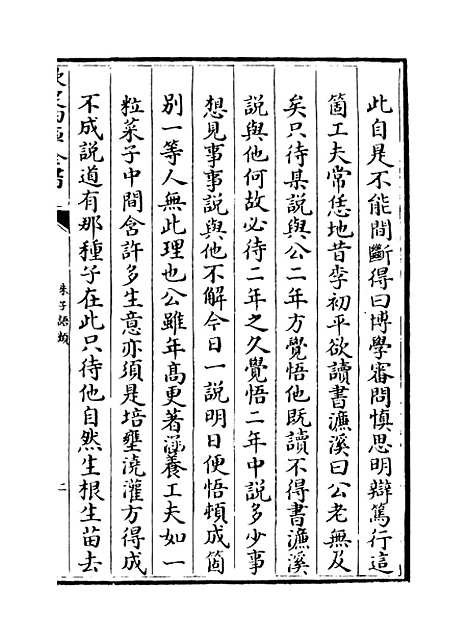 此自是不能間斷得曰博學審問慎思明辯篤行這
箇工夫常恁地昔李初平欲讀書濂溪曰公老無及
矣只待某說與公二年方覺悟他既讀不得書濂溪
說與他何故必待二年之久覺悟二年中說多少事
想見事事說與他不解今日一說明日便悟頓成箇
別一等人無此理也公雖年髙更著涵養工夫如一
粒菜子中間含許多生意亦須是培壅澆灌方得成
不成說道有那種子在此只待他自然生根生苗去
欽定四庫全書
朱子語類
二